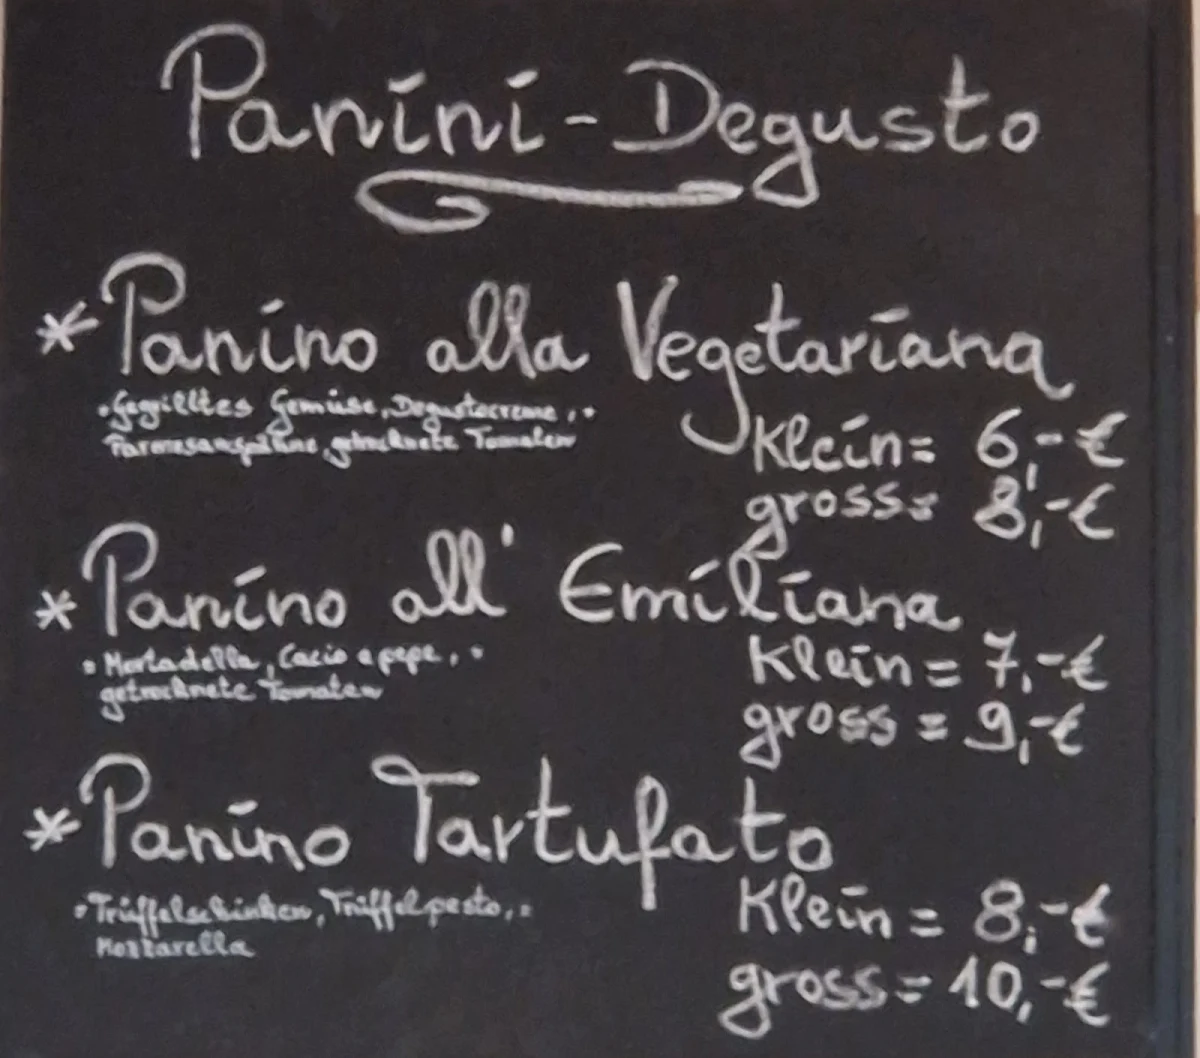 Panini-Degusto
* Panino alla Vegetariana
• Gegrilltes Gemüse, Degustocreme, •
Parmesanspäne, getrocknete Tomaten
Klein= 6,-€
gross= 8,-€
* Panino all' Emiliana
• Mortadella, Cacio e pepe, •
getrocknete Tomaten
Klein = 7,-€
gross = 9,-€
* Panino Tartufato
• Trüffelschinken, Trüffelpesto, •
Mozzarella
Klein = 8,-€
gross = 10,-€